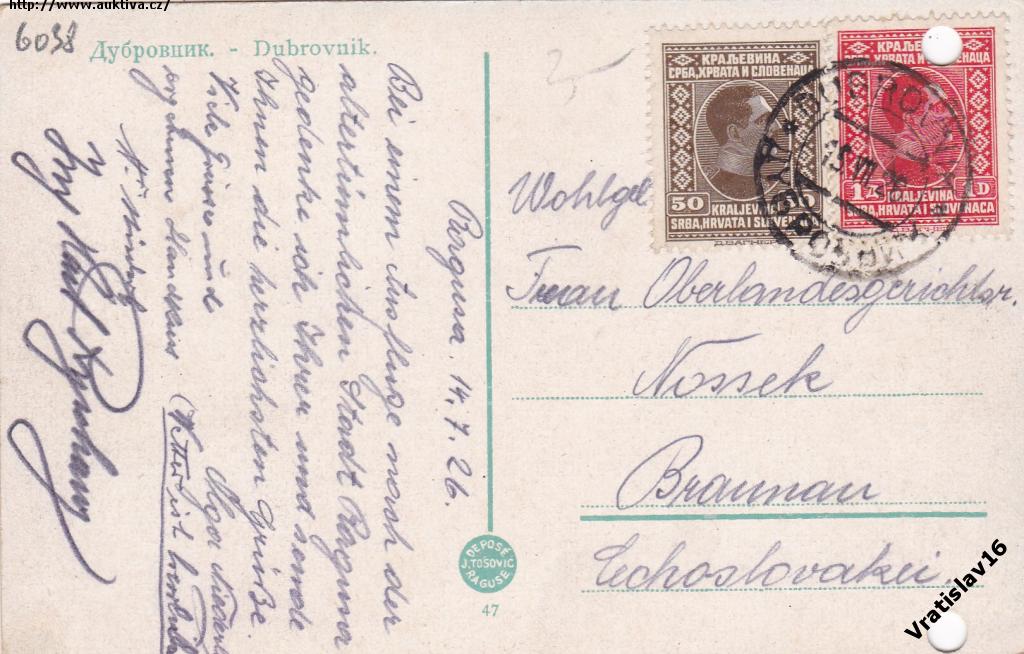 http://www.auktiva.cz/
6098
Дубровник. - Dubrovnik.
Ragusa. 14.7.26.
Bei einem Ausfluge nach der
altertümlichen Stadt Ragusa
gedenke ich Ihrer und sende
Ihnen die herzlichsten Grüße.
Olga
Viele Grüsse und
(Wetter ist herrlich
КРАЉЕВИНА
СРБА, ХРВАТА И СЛОВЕНАЦА
50
KRALJEVINA
SRBA, HRVATA I SLOVENACA
КРАЉЕВИНА
СРБА, ХРВАТА И СЛОВЕНАЦА
1 D
KRALJEVINA
SRBA, HRVATA I SLOVENACA
DUBROVNIK
ДУБРОВНИК
Wohlgeb
Frau Oberlandesgerichtsr.
Nossek
Braunau
Čechoslovakei.
DEPOSÉ
J. TOŠOVIĆ
RAGUSE
47
Vratislav16